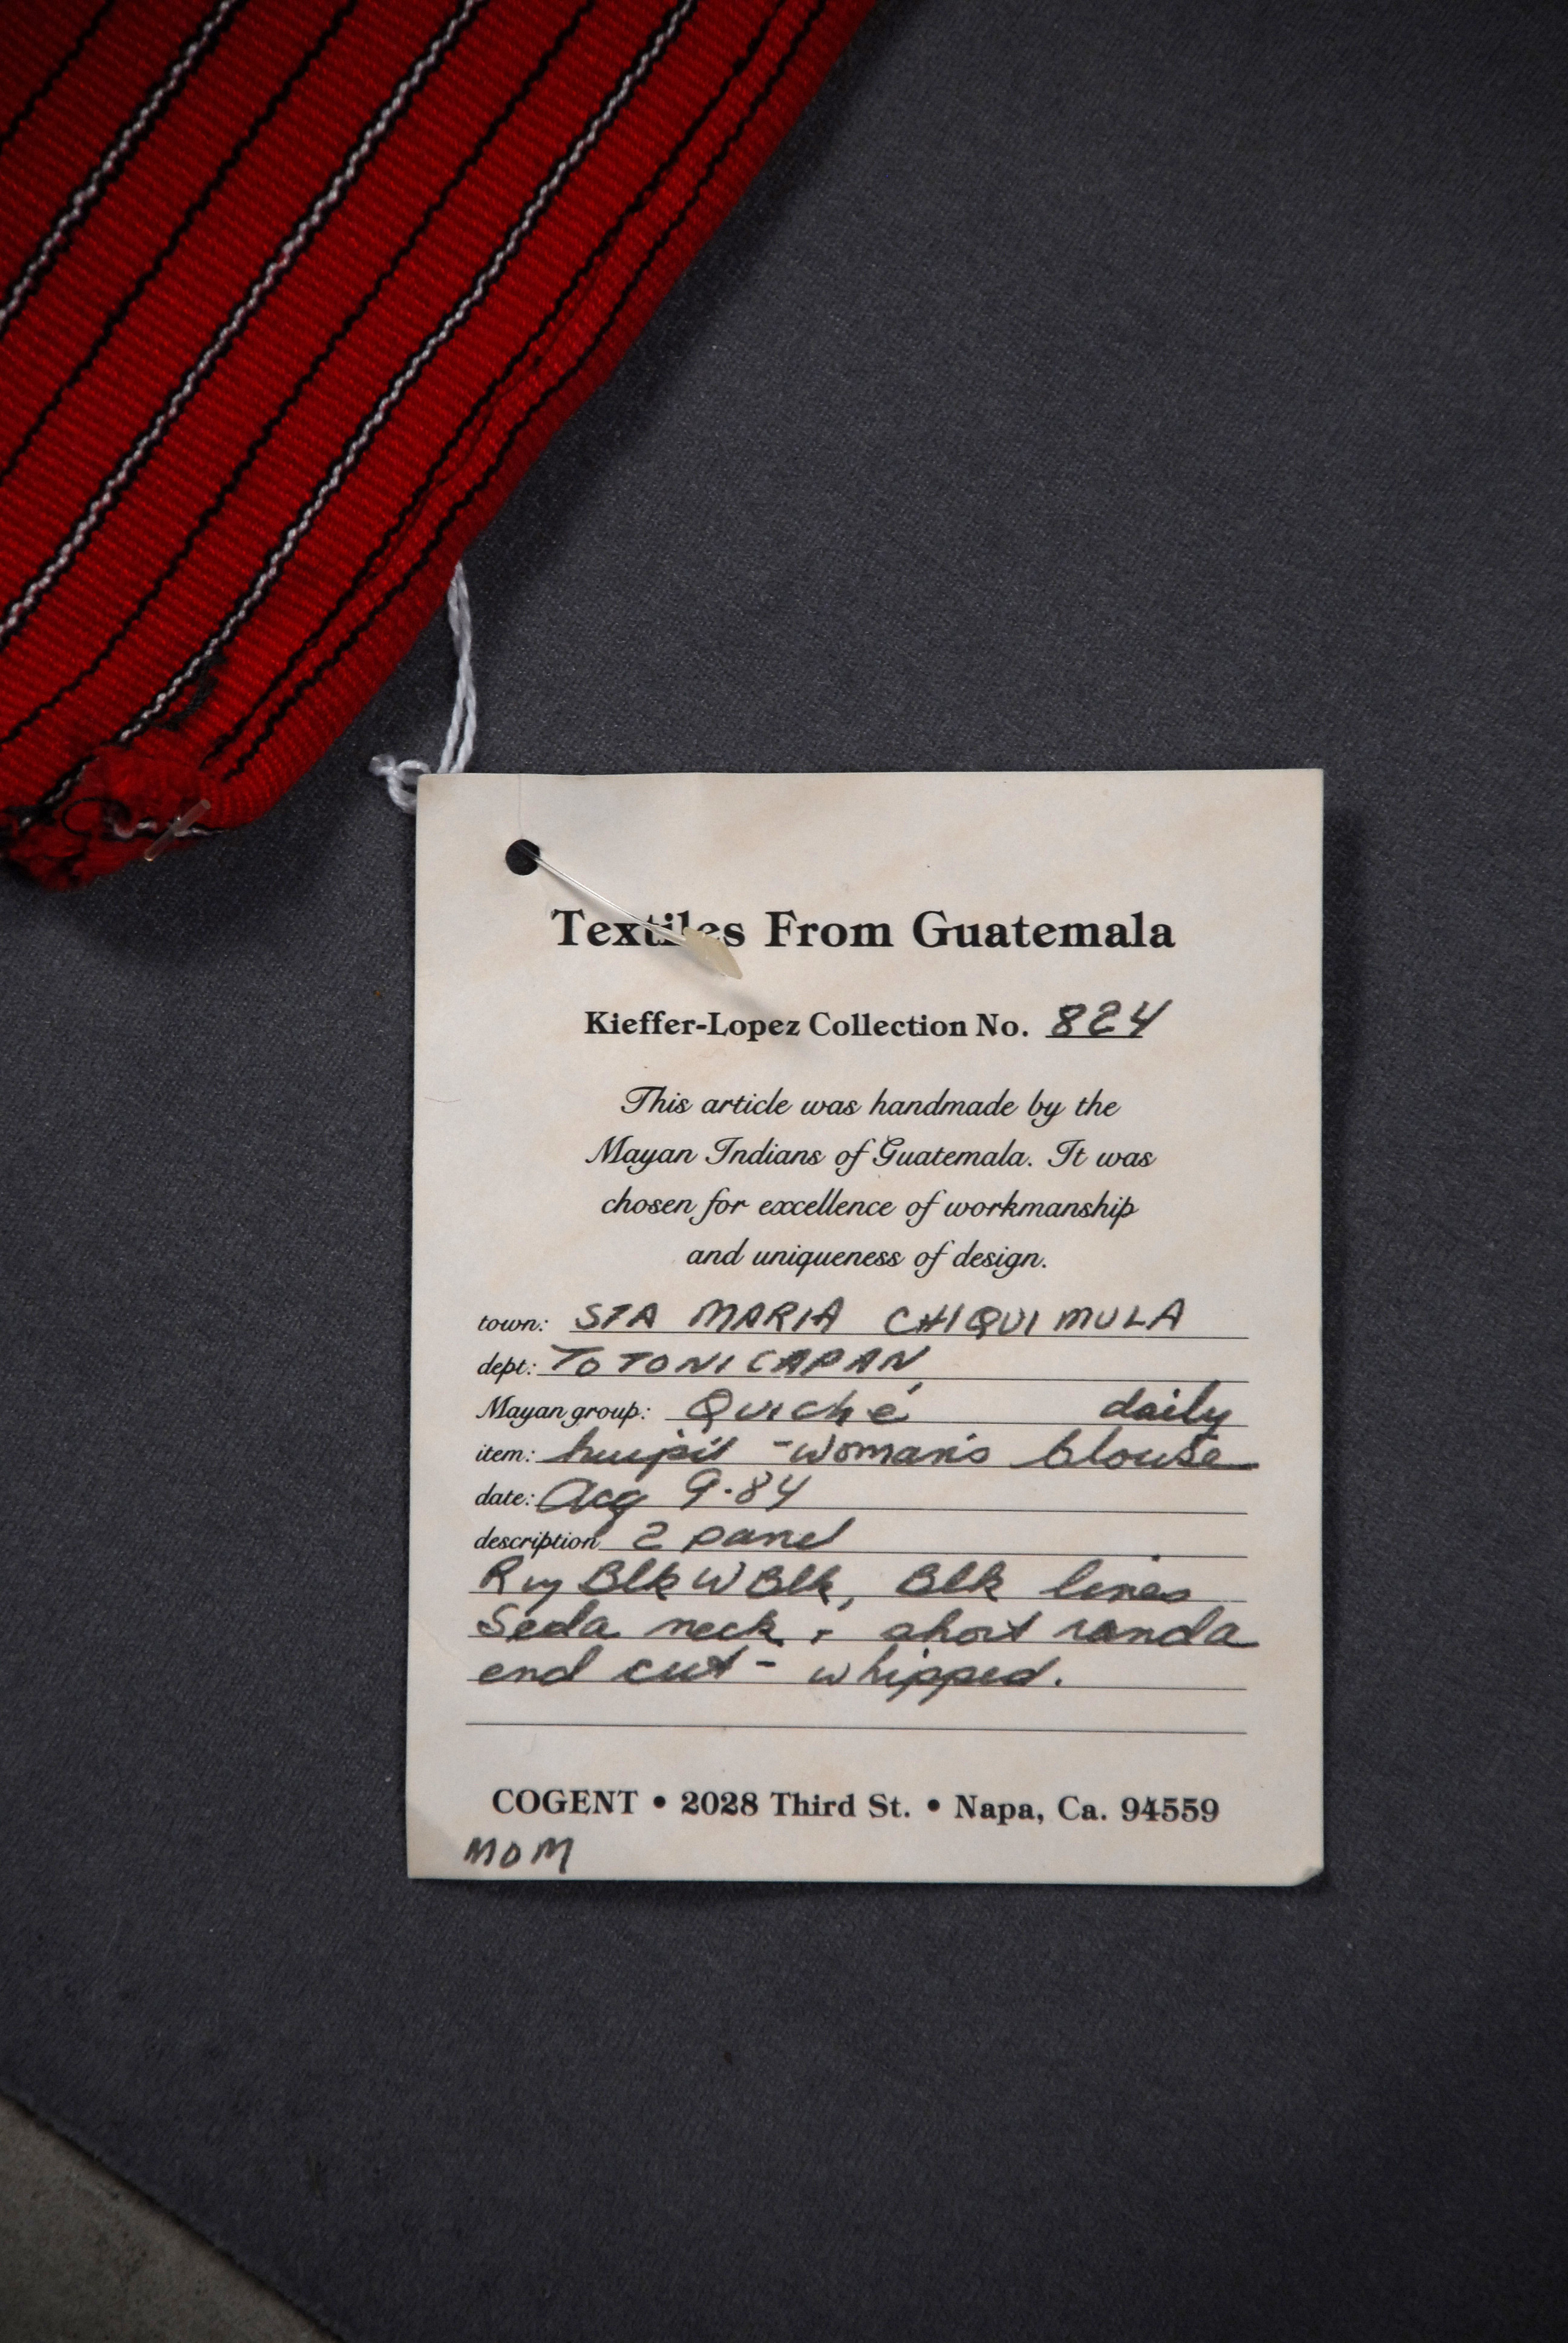 Textiles From Guatemala
Kieffer-Lopez Collection No. 824
This article was handmade by the
Mayan Indians of Guatemala. It was
chosen for excellence of workmanship
and uniqueness of design.
town: STA MARIA CHIQUIMULA
dept: TOTONICAPAN
Mayan group: Quiché daily
item: huipil - woman's blouse
date: Acq 9-84
description 2 panel
R w/ Blk W Blk, Blk lines
Seda neck + short randa
end cut - whipped.
COGENT • 2028 Third St. • Napa, Ca. 94559
MOM